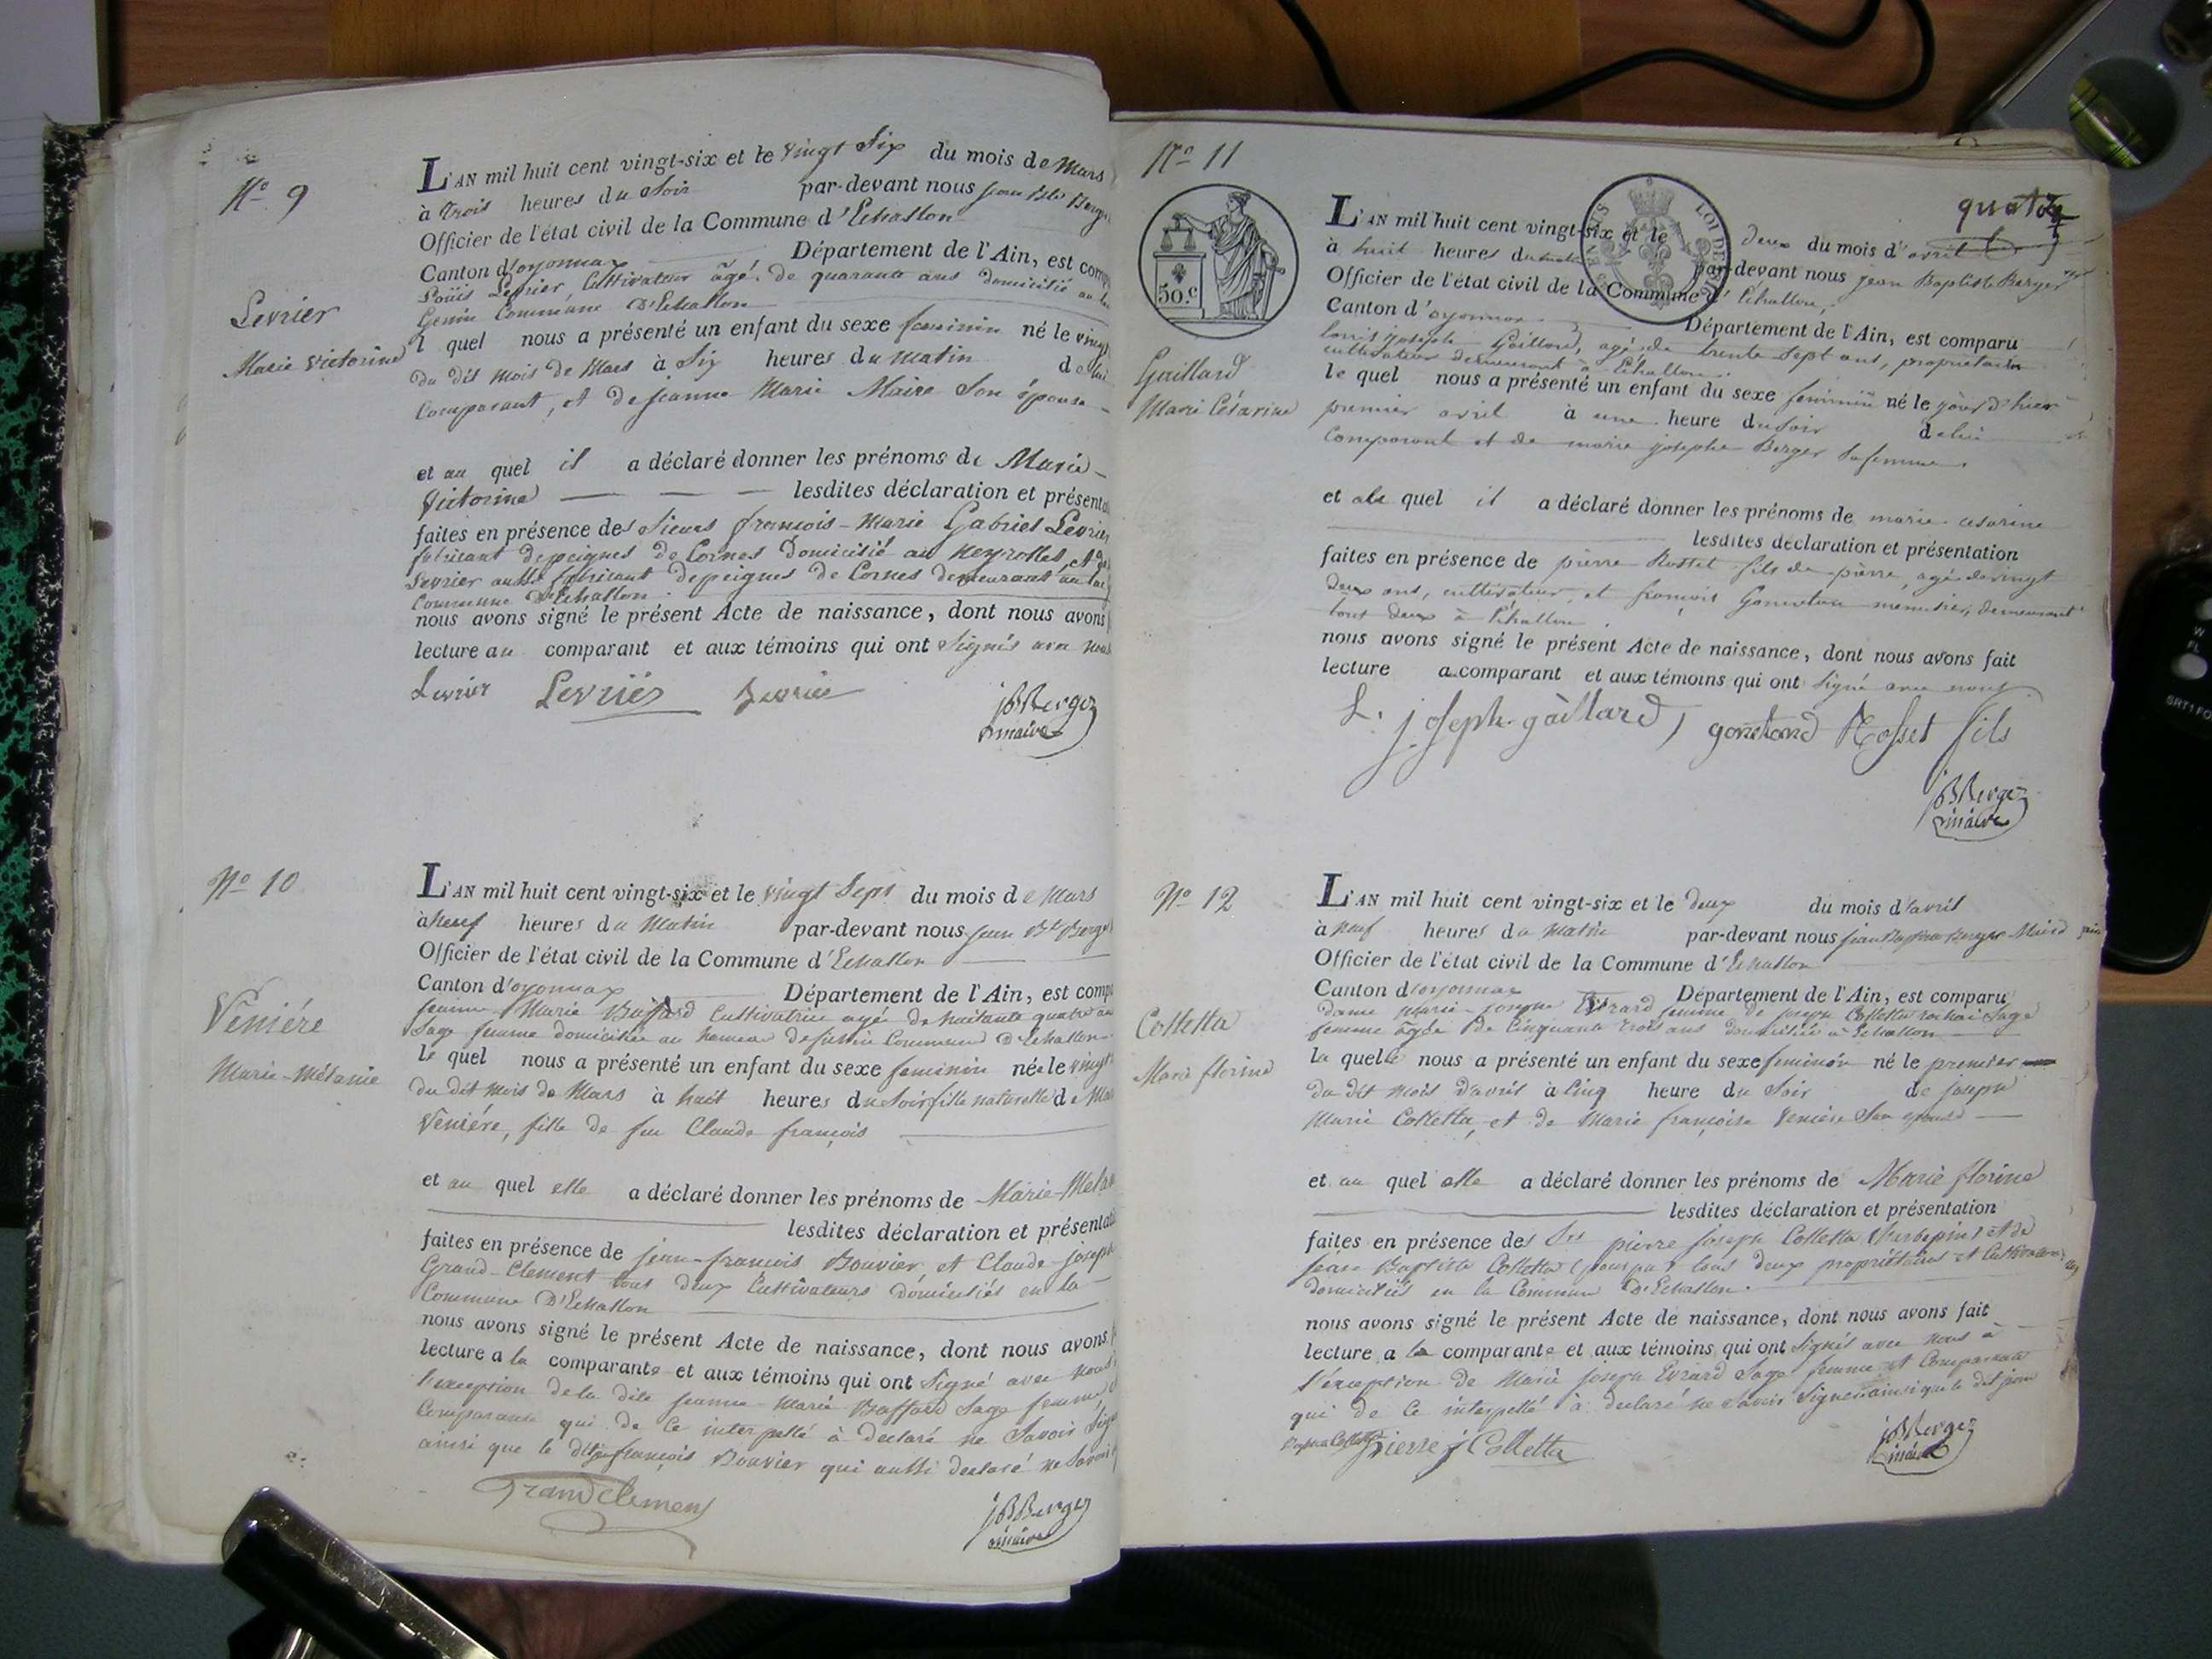 N.o 9
Levrier
Marie Victorine
L'AN mil huit cent vingt-six et le vingt Six du mois de Mars
à trois heures du Soir par-devant nous jean Bte Berger
Officier de l'état civil de la Commune d'Echallon
Canton d'oyonnax Département de l'Ain, est comp
Loüis Levrier Cultivateur âgé de quarante ans domicilié au
Genin Commune D'Echallon
l quel nous a présenté un enfant du sexe feminin né le vingt
du dit mois de Mars à Six heures du matin de lui
Comparant, et de jeanne Marie Maire Son épouse
et au quel il a déclaré donner les prénoms de Marie
Victorine lesdites déclaration et présenta
faites en présence des Sieurs françois-Marie Gabriel Levrier
fabricant depeignes de Cornes Domicilié au Neyrolles, et de
Levrier aussi fabricant depeignes de Cornes demeurant au lac
Commune D'Echallon
nous avons signé le présent Acte de naissance, dont nous avons
lecture au comparant et aux témoins qui ont Signés avec nous
Levrier Levrier Levrier
jB Berger
maire
N.o 10
Veniére
Marie-Mélanie
L'AN mil huit cent vingt-six et le vingt Sept du mois de Mars
à Neuf heures du Matin par-devant nous jean Bte Berger
Officier de l'état civil de la Commune d'Echallon
Canton d'oyonnax Département de l'Ain, est comp
jeanne Marie Baffard Cultivatrice agé de huitante quatre an
Sage femme domiciliée au hameau de Commune D'Echallon
le quel nous a présenté un enfant du sexe feminin né le vingt
du dit mois de Mars à huit heures du Soir fille naturelle de Ma
Veniére, fille de feu Claude françois
et au quel elle a déclaré donner les prénoms de Marie-Mela
lesdites déclaration et présentati
faites en présence de jean-françois Bouvier et Claude-joseph
Grand-Clement tous deux Cultivateurs domiciliés en la
Commune D'Echallon
nous avons signé le présent Acte de naissance, dont nous avons f
lecture a la comparante et aux témoins qui ont Signé avec nous
l'exception de la dite jeanne Marie Baffard Sage femme
Comparante qui de Ce interpellé à declaré ne Savoir Sign
ainsi que le dit jn françois Bouvier qui aussi declaré ne Savoir
Grandclement
jB Berger
maire
N.o 11
quatoz
50.c
Gaillard
Marie Césarine
L'AN mil huit cent vingt-six et le deux du mois d'avril
à huit heures du par-devant nous jean Baptiste Berger
Officier de l'état civil de la Commune d'Echallon,
Canton d'oyonnax Département de l'Ain, est comparu
louis joseph Gaillard, agé de trente Sept ans, propriétaire
cultivateur demeurant à Echallon
le quel nous a présenté un enfant du sexe feminin né le jour d'hier
premier avril à une heure du Soir de lui
comparant et de marie josephe Berger Sa femme.
et au quel il a déclaré donner les prénoms de marie cesarine
lesdites déclaration et présentation
faites en présence de pierre Rosset fils de pierre, agé de vingt
deux ans, cultivateur, et françois Gonetan menuisier, demeurant
tout deux à Echallon,
nous avons signé le présent Acte de naissance, dont nous avons fait
lecture au comparant et aux témoins qui ont Signé avec nous
L. joseph gaillard gonetand Rosset fils
jB Berger
maire
N.o 12
Colletta
Marie florine
L'AN mil huit cent vingt-six et le deux du mois d'avril
à Neuf heures du Matin par-devant nous jean Baptiste Berger Maire
Officier de l'état civil de la Commune d'Echallon
Canton d'oyonnax Département de l'Ain, est comparu
Dame Marie-joseph Evrard femme de joseph Colletta Sage
femme âgée de Cinquante trois ans domiciliée à Echallon
la quelle nous a présenté un enfant du sexe feminin né le premier
du dit mois d'avril à Cinq heure du Soir de joseph
Marie Colletta, et de Marie françoise Veniére Son epouse
et au quel elle a déclaré donner les prénoms de Marie florine
lesdites déclaration et présentation
faites en présence des Srs pierre joseph Colletta et de
jean Baptiste Colletta tous deux propriétaires et Cultivateurs
domiciliés en la Commune D'Echallon.
nous avons signé le présent Acte de naissance, dont nous avons fait
lecture a la comparante et aux témoins qui ont Signés avec nous à
l'exception de Marie joseph Evrard Sage femme et Comparante
qui de Ce interpellé à declaré ne Savoir Signer ainsi que le dit jean
Baptiste Colletta pierre j Colletta
jB Berger
maire